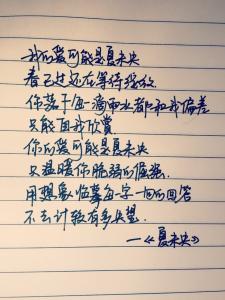 我的爱可能是夏未央
春已过还在等待绽放
你落下每一滴雨水都和我偏差
只能自我欣赏
你的爱可能是夏未央
只温暖你脆弱的倔强
用想象临摹每一字一句的回答
不去计较有多失望
——《夏未央》